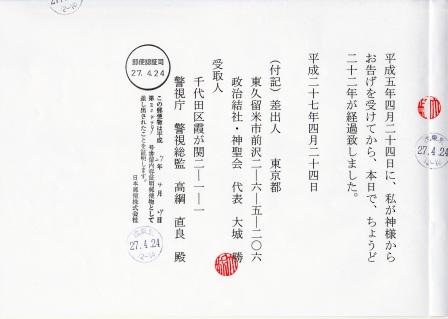 平成五年四月二十四日に、私が神様から
お告げを受けてから、本日で、ちょうど
二十二年が経過致しました。
平成二十七年四月二十四日
（付記）差出人　東京都
東久留米市前沢二―六―五―二〇六
政治結社・神聖会　代表　大城　勝
受取人
千代田区霞が関二―一―一
警視庁　警視総監　高綱　直良　殿
この郵便物は平成27年4月
号書留内容証明郵便物として
差し出されたことを証明します。
日本郵便株式会社
郵便認証司
27.4.24
27.4.24
27.4.24